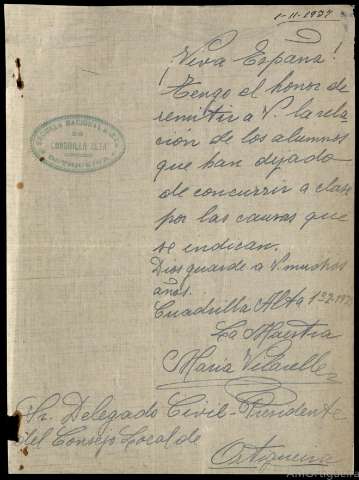 1-11-1937
¡Viva España!
Tengo el honor de
remitir a V. la rela
ción de los alumnos
que han dejado
de concurrir a clase
por las causas que
se indican.
Dios guarde a V. muchos
años.
ESCUELA NACIONAL
DE
CUADRILLA ALTA
ORTIGUEIRA
Cuadrilla Alta
La Maestra
María Vilarelle
Sr. Delegado Civil-Presidente
del Consejo Local de
Ortigueira
AMOrtigueira